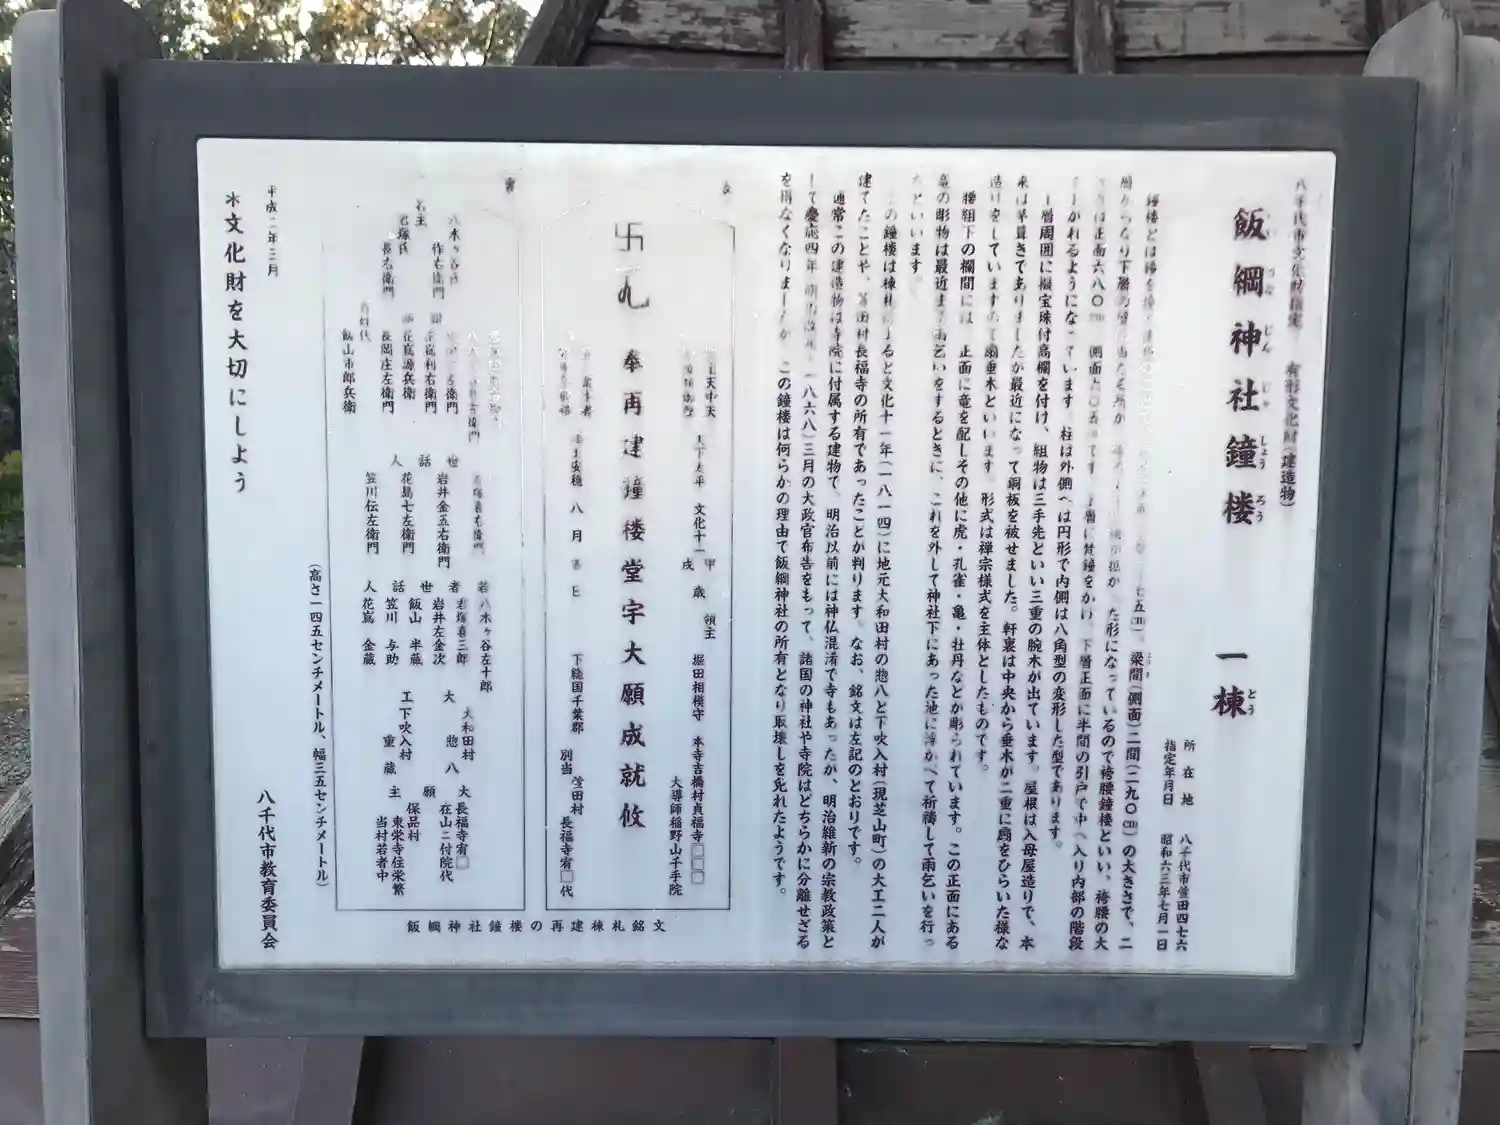 八千代市文化財指定 有形文化財(建造物)
飯綱神社鐘楼 一棟
いい づな じん じゃ しょう ろう とう
所在地 八千代市萱田四七六
指定年月日 昭和六三年七月一日
鐘楼とは鐘を 七五㎝)。梁間(側面)二間(二九〇㎝)の大きさで、二
層からなり下層の 形になっているので袴腰鐘楼といい、袴腰の大
きさは正面六八〇㎝ 側面六〇五㎝です。上層に梵鐘をかけ、下層正面に半間の引戸で中へ入り内部の階段
であがれるようになっています。柱は外側へは円形で内側は八角型の変形した型であります。
上層周囲に擬宝珠付高欄を付け、組物は三手先といい三重の腕木が出ています。屋根は入母屋造りで、本
来は茅葺きでありましたが最近になって銅板を被せました。軒裏は中央から垂木が二重に扇をひらいた様な
造りをしていますので扇垂木といいます。形式は禅宗様式を主体としたものです。
腰組下の欄間には、正面に竜を配しその他に虎・孔雀・亀・牡丹などが彫られています。この正面にある
竜の彫物は最近まで雨乞いをするときに、これを外して神社下にあった池に浮かべて祈祷して雨乞いを行っ
たといいます。
この鐘楼は棟札によると文化十一年(一八一四)に地元大和田村の惣八と下吹入村(現芝山町)の大工二人が
建てたことや、萱田村長福寺の所有であったことが判ります。なお、銘文は左記のとおりです。
通常この建造物は寺院に付属する建物で、明治以前には神仏混淆で寺もあったが、明治維新の宗教政策と
して慶応四年(明治元年 一八六八)三月の大政官布告をもって、諸国の神社や寺院はどちらかに分離せざる
を得なくなりましたが、この鐘楼は何らかの理由で飯綱神社の所有となり取壊しを免れたようです。
表
天中天 天下太平 文化十一 甲戌歳 領主 堀田相模守 本寺吉橋村貞福寺□□□
大導師稲野山千手院
卍 奉再建鐘楼堂宇大願成就攸
国土安穏 八月吉日 下総国千葉郡 別当 萱田村 長福寺宥□代
裏
名主 八木ヶ谷氏 作右衛門
君塚氏 長右衛門
利右衛門
花嶌源兵衛
長岡庄左衛門
百姓代 飯山市郎兵衛
世話人
君塚喜右衛門
岩井金五右衛門
花島七左衛門
笠川伝左衛門
若者世話人
八木ヶ谷左十郎
君塚喜三郎
岩井左金次
飯山 半蔵
笠川 与助
花嶌 金蔵
大工
大和田村 惣八
下吹入村 重蔵
大願主
長福寺宥□
在山ニ付院代
保品村
東栄寺住栄繁
当村若者中
飯綱神社鐘楼の再建棟札銘文
(高さ一四五センチメートル、幅三五センチメートル)
平成二年三月
八千代市教育委員会
*文化財を大切にしよう